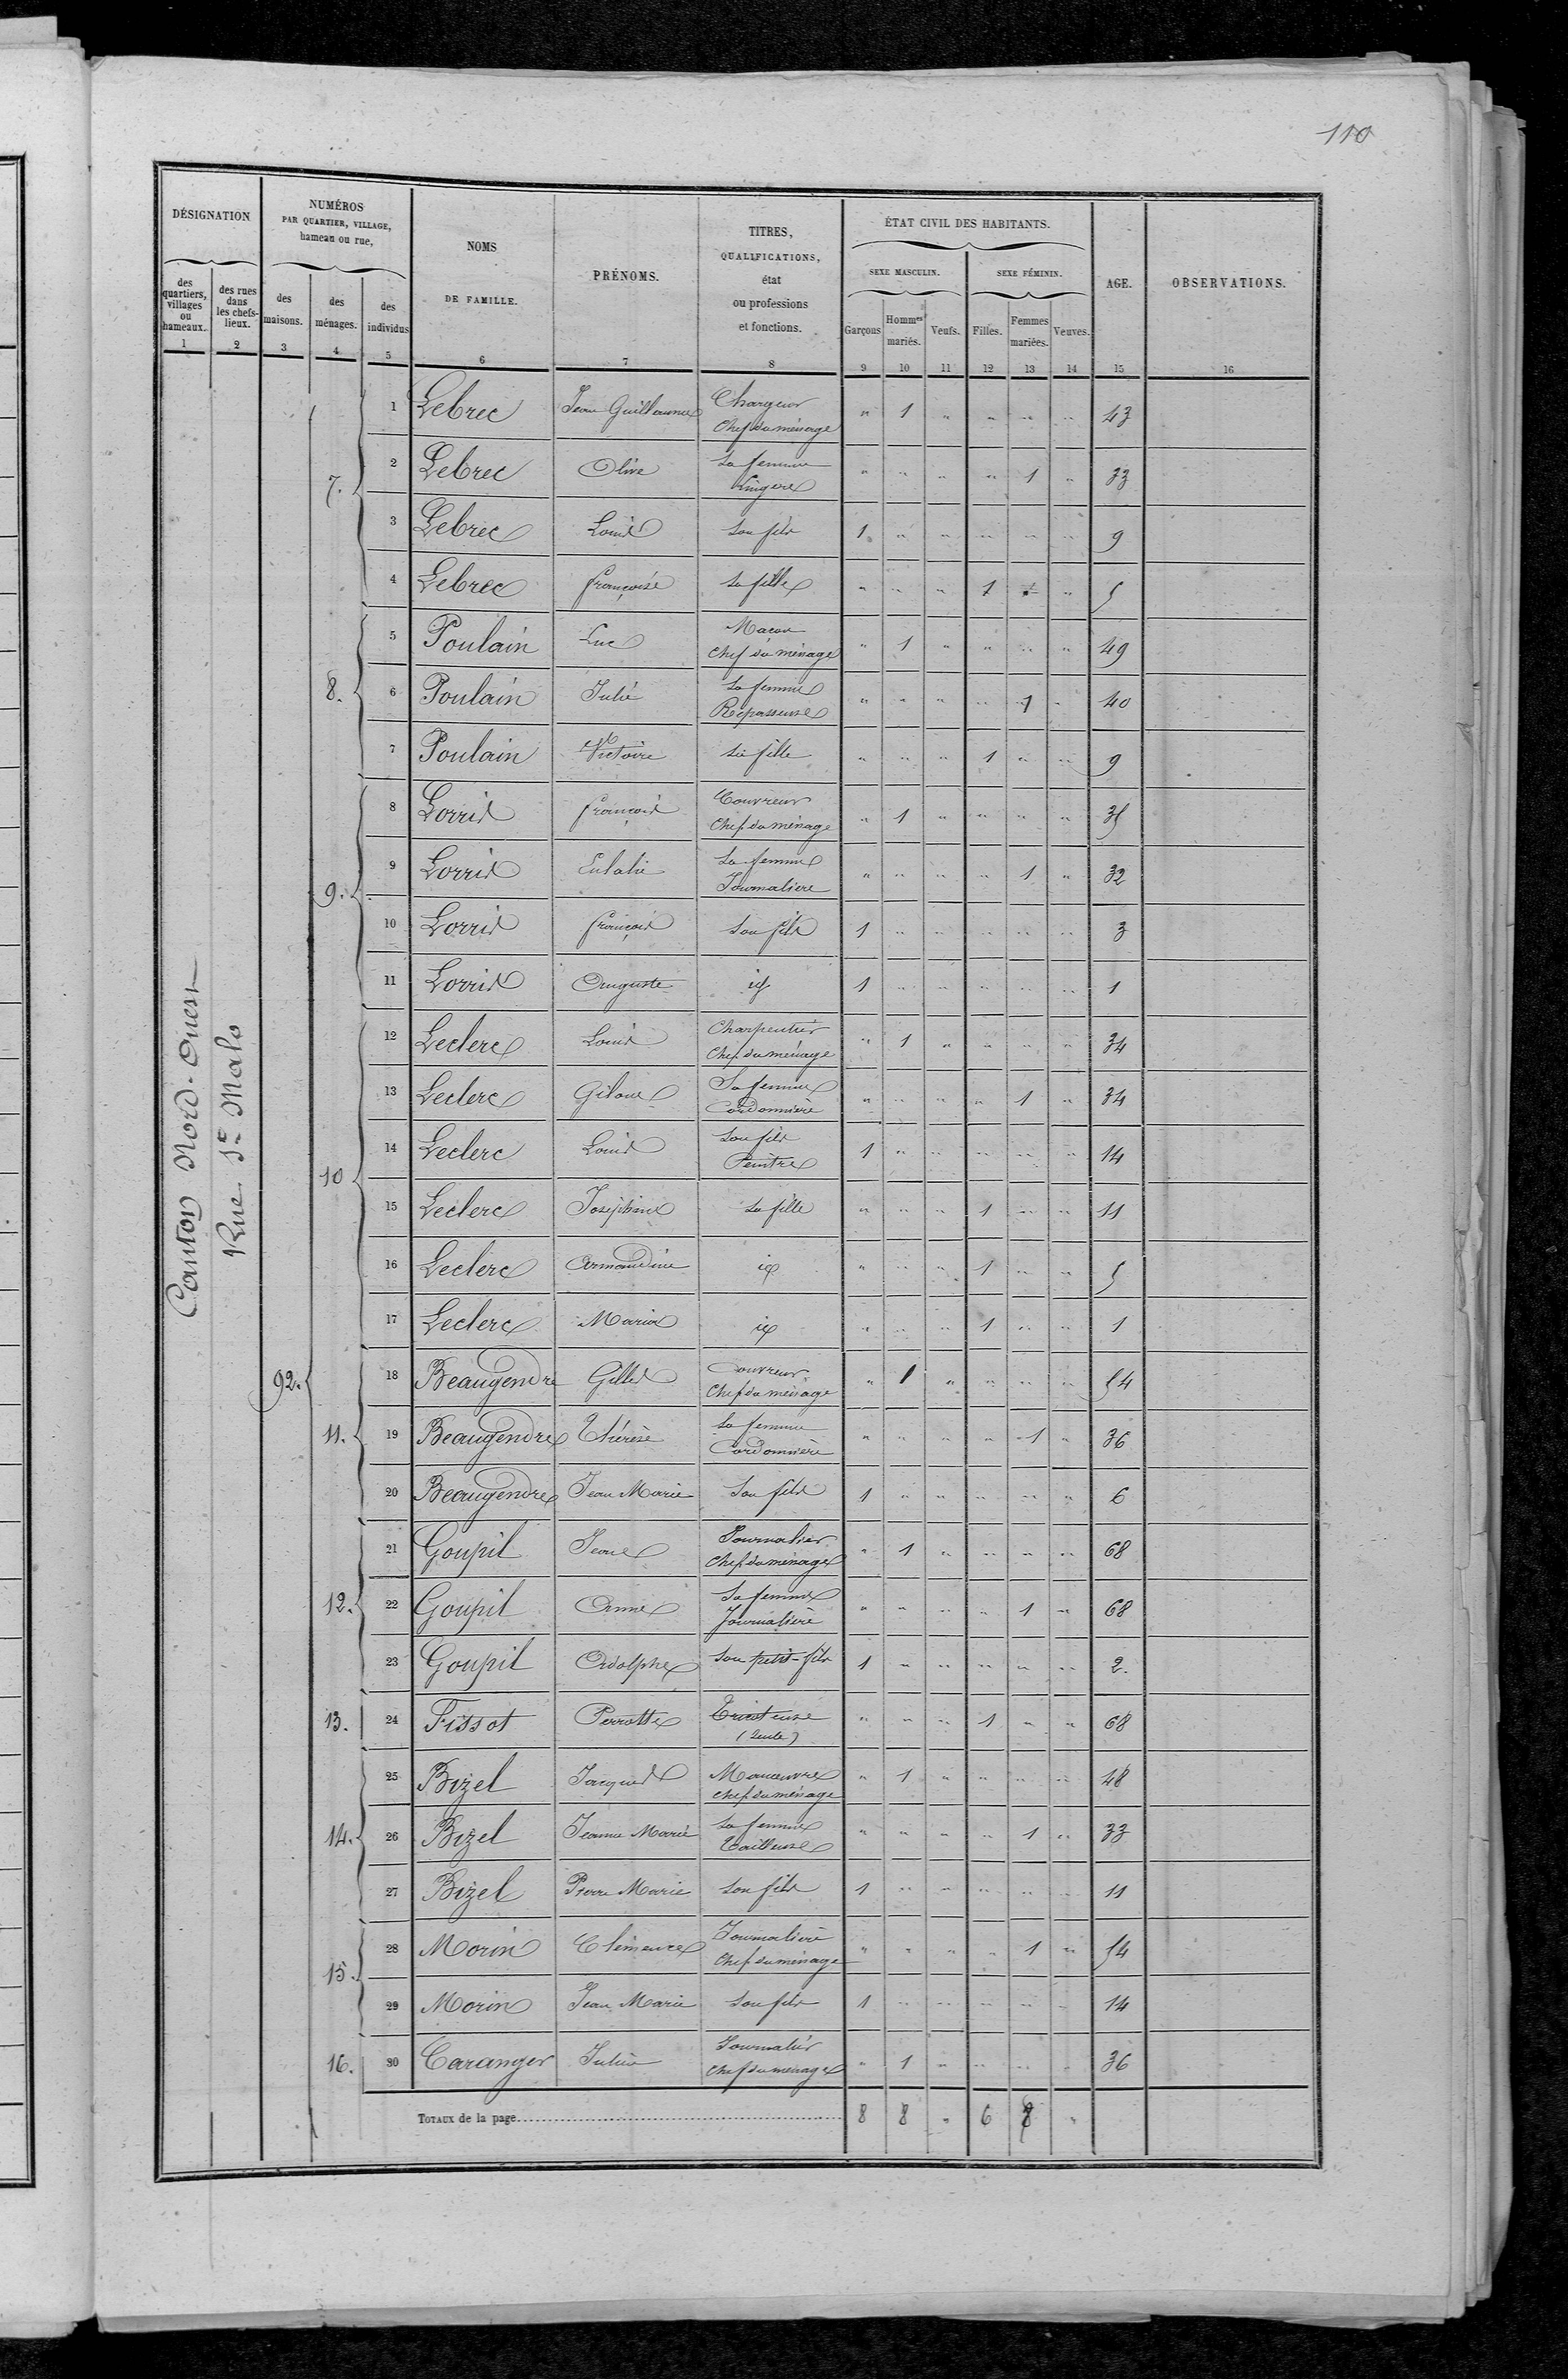 110
DÉSIGNATION
NUMÉROS
PAR QUARTIER, VILLAGE,
hameau ou rue,
NOMS
DE FAMILLE.
PRÉNOMS.
TITRES,
QUALIFICATIONS,
état
ou professions
et fonctions.
ÉTAT CIVIL DES HABITANTS.
SEXE MASCULIN. SEXE FÉMININ.
AGE.
OBSERVATIONS.
des quartiers, villages ou hameaux.
des rues dans les chefs-lieux.
des maisons.
des ménages.
des individus
Garçons Hommes mariés. Veufs. Filles. Femmes mariées. Veuves.
1 2 3 4 5 6 7 8 9 10 11 12 13 14 15 16
Canton Nord-Ouest
Rue St Malo
92.
7.
1 Lebrec Jean Guillaume Chargeur Chef du ménage " 1 " " " " 43
2 Lebrec Olive Sa femme Lingère " " " " 1 " 33
3 Lebrec Louis Son fils 1 " " " " " 9
4 Lebrec Françoise Sa fille " " " 1 " " 5
8.
5 Poulain Luc Macon Chef du ménage " 1 " " " " 49
6 Poulain Julie Sa femme Repasseuse " " " " 1 " 40
7 Poulain Victoire Sa fille " " " 1 " " 9
9.
8 Lorris François Couvreur Chef du ménage " 1 " " " " 35
9 Lorris Eulalie Sa femme Journalière " " " " 1 " 32
10 Lorris François Son fils 1 " " " " " 3
11 Lorris Auguste id 1 " " " " " 1
10
12 Leclerc Louis Charpentier Chef du ménage " 1 " " " " 34
13 Leclerc Sa femme Cordonnière " " " " 1 " 34
14 Leclerc Louis Son fils Peintre 1 " " " " " 14
15 Leclerc Joséphine Sa fille " " " 1 " " 11
16 Leclerc Armandine id " " " 1 " " 5
17 Leclerc Maria id " " " 1 " " 1
11.
18 Beaugendre Gilles Couvreur Chef du ménage " 1 " " " " 54
19 Beaugendre Thérèse Sa femme Cordonnière " " " " 1 " 36
20 Beaugendre Jean Marie Son fils 1 " " " " " 6
12.
21 Goupil Jean Journalier Chef du ménage " 1 " " " " 68
22 Goupil Anne Sa femme Journalière " " " " 1 " 68
23 Goupil Adolphe Son petit-fils 1 " " " " " 2.
13.
24 Fissot Perrotte Tricoteuse (Seule) " " " 1 " " 68
14.
25 Bizel Jacques Manœuvre Chef du ménage " 1 " " " " 48
26 Bizel Jeanne Marie Sa femme Tailleuse " " " " 1 " 33
27 Bizel Pierre Marie Son fils 1 " " " " " 11
15.
28 Morin Clémence Journalière Chef du ménage " " " " 1 " 54
29 Morin Jean Marie Son fils 1 " " " " " 14
16.
30 Caranger Julien Journalier Chef du ménage " 1 " " " " 36
TOTAUX de la page 8 8 " 6 8 "